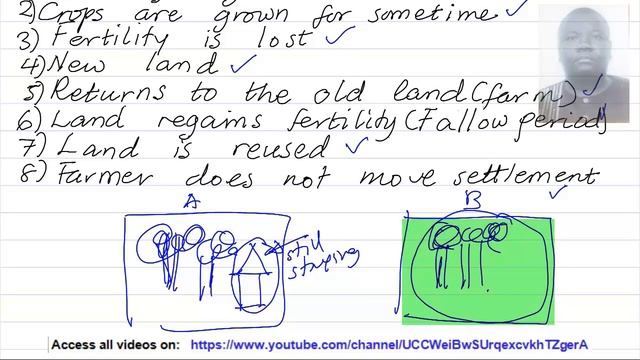 2) Crops are grown for sometime
3) Fertility is lost
4) New land
5) Returns to the old land (farm)
6) Land regains fertility (Fallow period)
7) Land is reused
8) Farmer does not move settlement
A
B
still
staying
Access all videos on: https://www.youtube.com/channel/UCCWeiBwSUrqexcvkhTZgerA